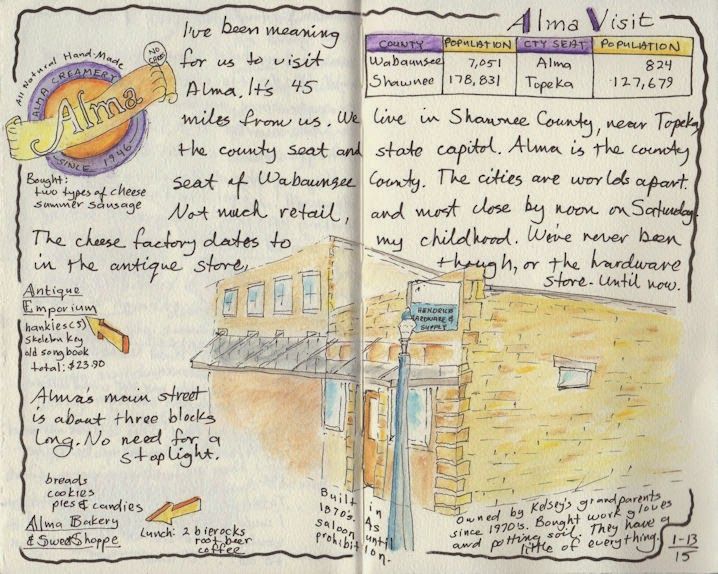 Alma Visit
COUNTY POPULATION CTY SEAT POPULATION
Wabaunsee 7,051 Alma 824
Shawnee 178,831 Topeka 127,679
All Natural Hand-Made
ALMA CREAMERY
Alma
SINCE 1946
Bought:
two types of cheese
summer sausage
I've been meaning
for us to visit
Alma. It's 45
miles from us. We live in Shawnee County, near Topeka,
the county seat and state capitol. Alma is the county
seat of Wabaunsee County. The cities are worlds apart.
Not much retail, and most close by noon on Saturday.
The cheese factory dates to my childhood. We've never been
in the antique store, though, or the hardware
store. Until now.
Antique
Emporium
hankies (5)
skeleton key
old songbook
total: $23.90
HENDRICKS
HARDWARE &
SUPPLY
Alma's main street
is about three blocks
long. No need for a
stoplight.
breads
cookies
pies & candies
Alma Bakery
& Sweet Shoppe
Lunch: 2 bierocks
root beer
coffee
Built in
1870s. As
saloon until
prohibition.
Owned by Kelsey's grandparents
since 1970's. Bought work gloves
and potting soil. They have a
little of everything.
1-13
15